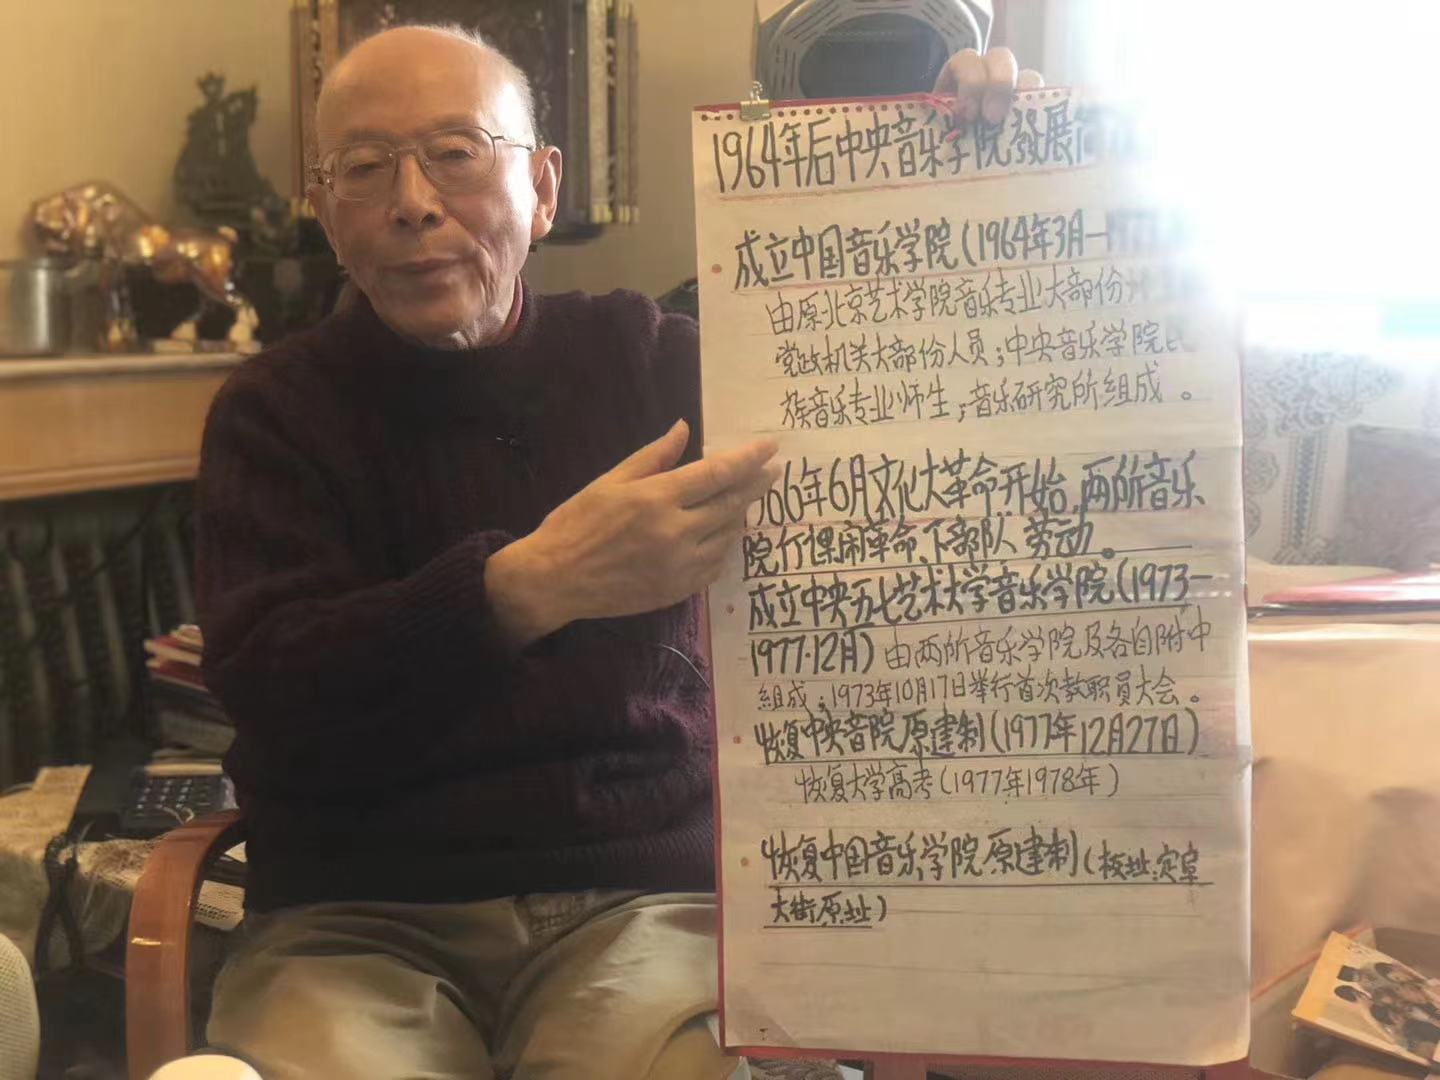 1964年后中央音乐学院發展简
成立中国音乐学院(1964年3月—
由原北京艺术学院音乐专业大部份
党政机关大部份人员；中央音乐学院民
族音乐专业师生；音乐研究所组成。
1966年6月文化大革命开始,两所音乐
院仃课闹革命、下部队、劳动。
成立中央五七艺术大学音乐学院(1973—
1977.12月)由两所音乐学院及各自附中
组成；1973年10月17日举行首次教职员大会。
恢复中央音院原建制(1977年12月27日)
恢复大学高考(1977年1978年)
恢复中国音乐学院原建制(校址:定阜
大街原址)